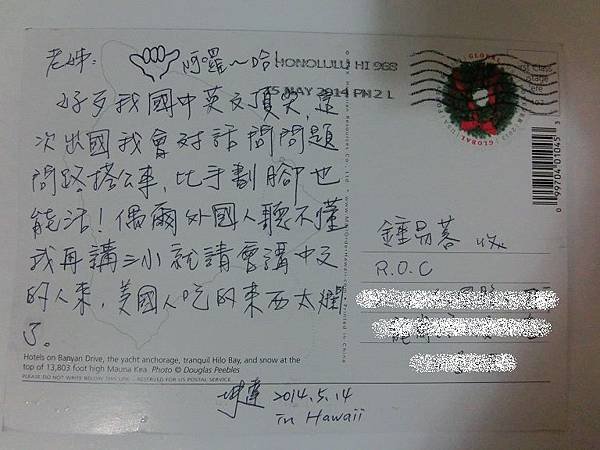 老姊：阿囉～哈！
好歹我國中英文頂尖，這
次出國我會对話問問題
問路搭公車，比手劃腳也
能活！偶爾外國人聽不懂
我再講三小就請會講中文
的人來，美國人吃的東西太爛
了。
2014.5.14
in Hawaii
HONOLULU HI 968
15 MAY 2014 PM 2 L
GLOBAL
鍾易蓉 收
R.O.C
Hotels on Banyan Drive, the yacht anchorage, tranquil Hilo Bay, and snow at the
top of 13,803 foot high Mauna Kea Photo © Douglas Peebles
PLEASE DO NOT WRITE BELOW THIS LINE - RESERVED FOR US POSTAL SERVICE
Printed in China
0 99704 01045